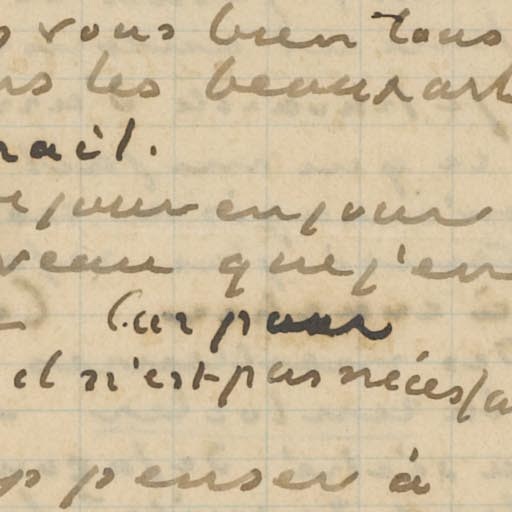 vous bien tous
les beaux art
rail.
jour en jour
veau que j'en
Car pour
il n'est pas nécessa
penser à